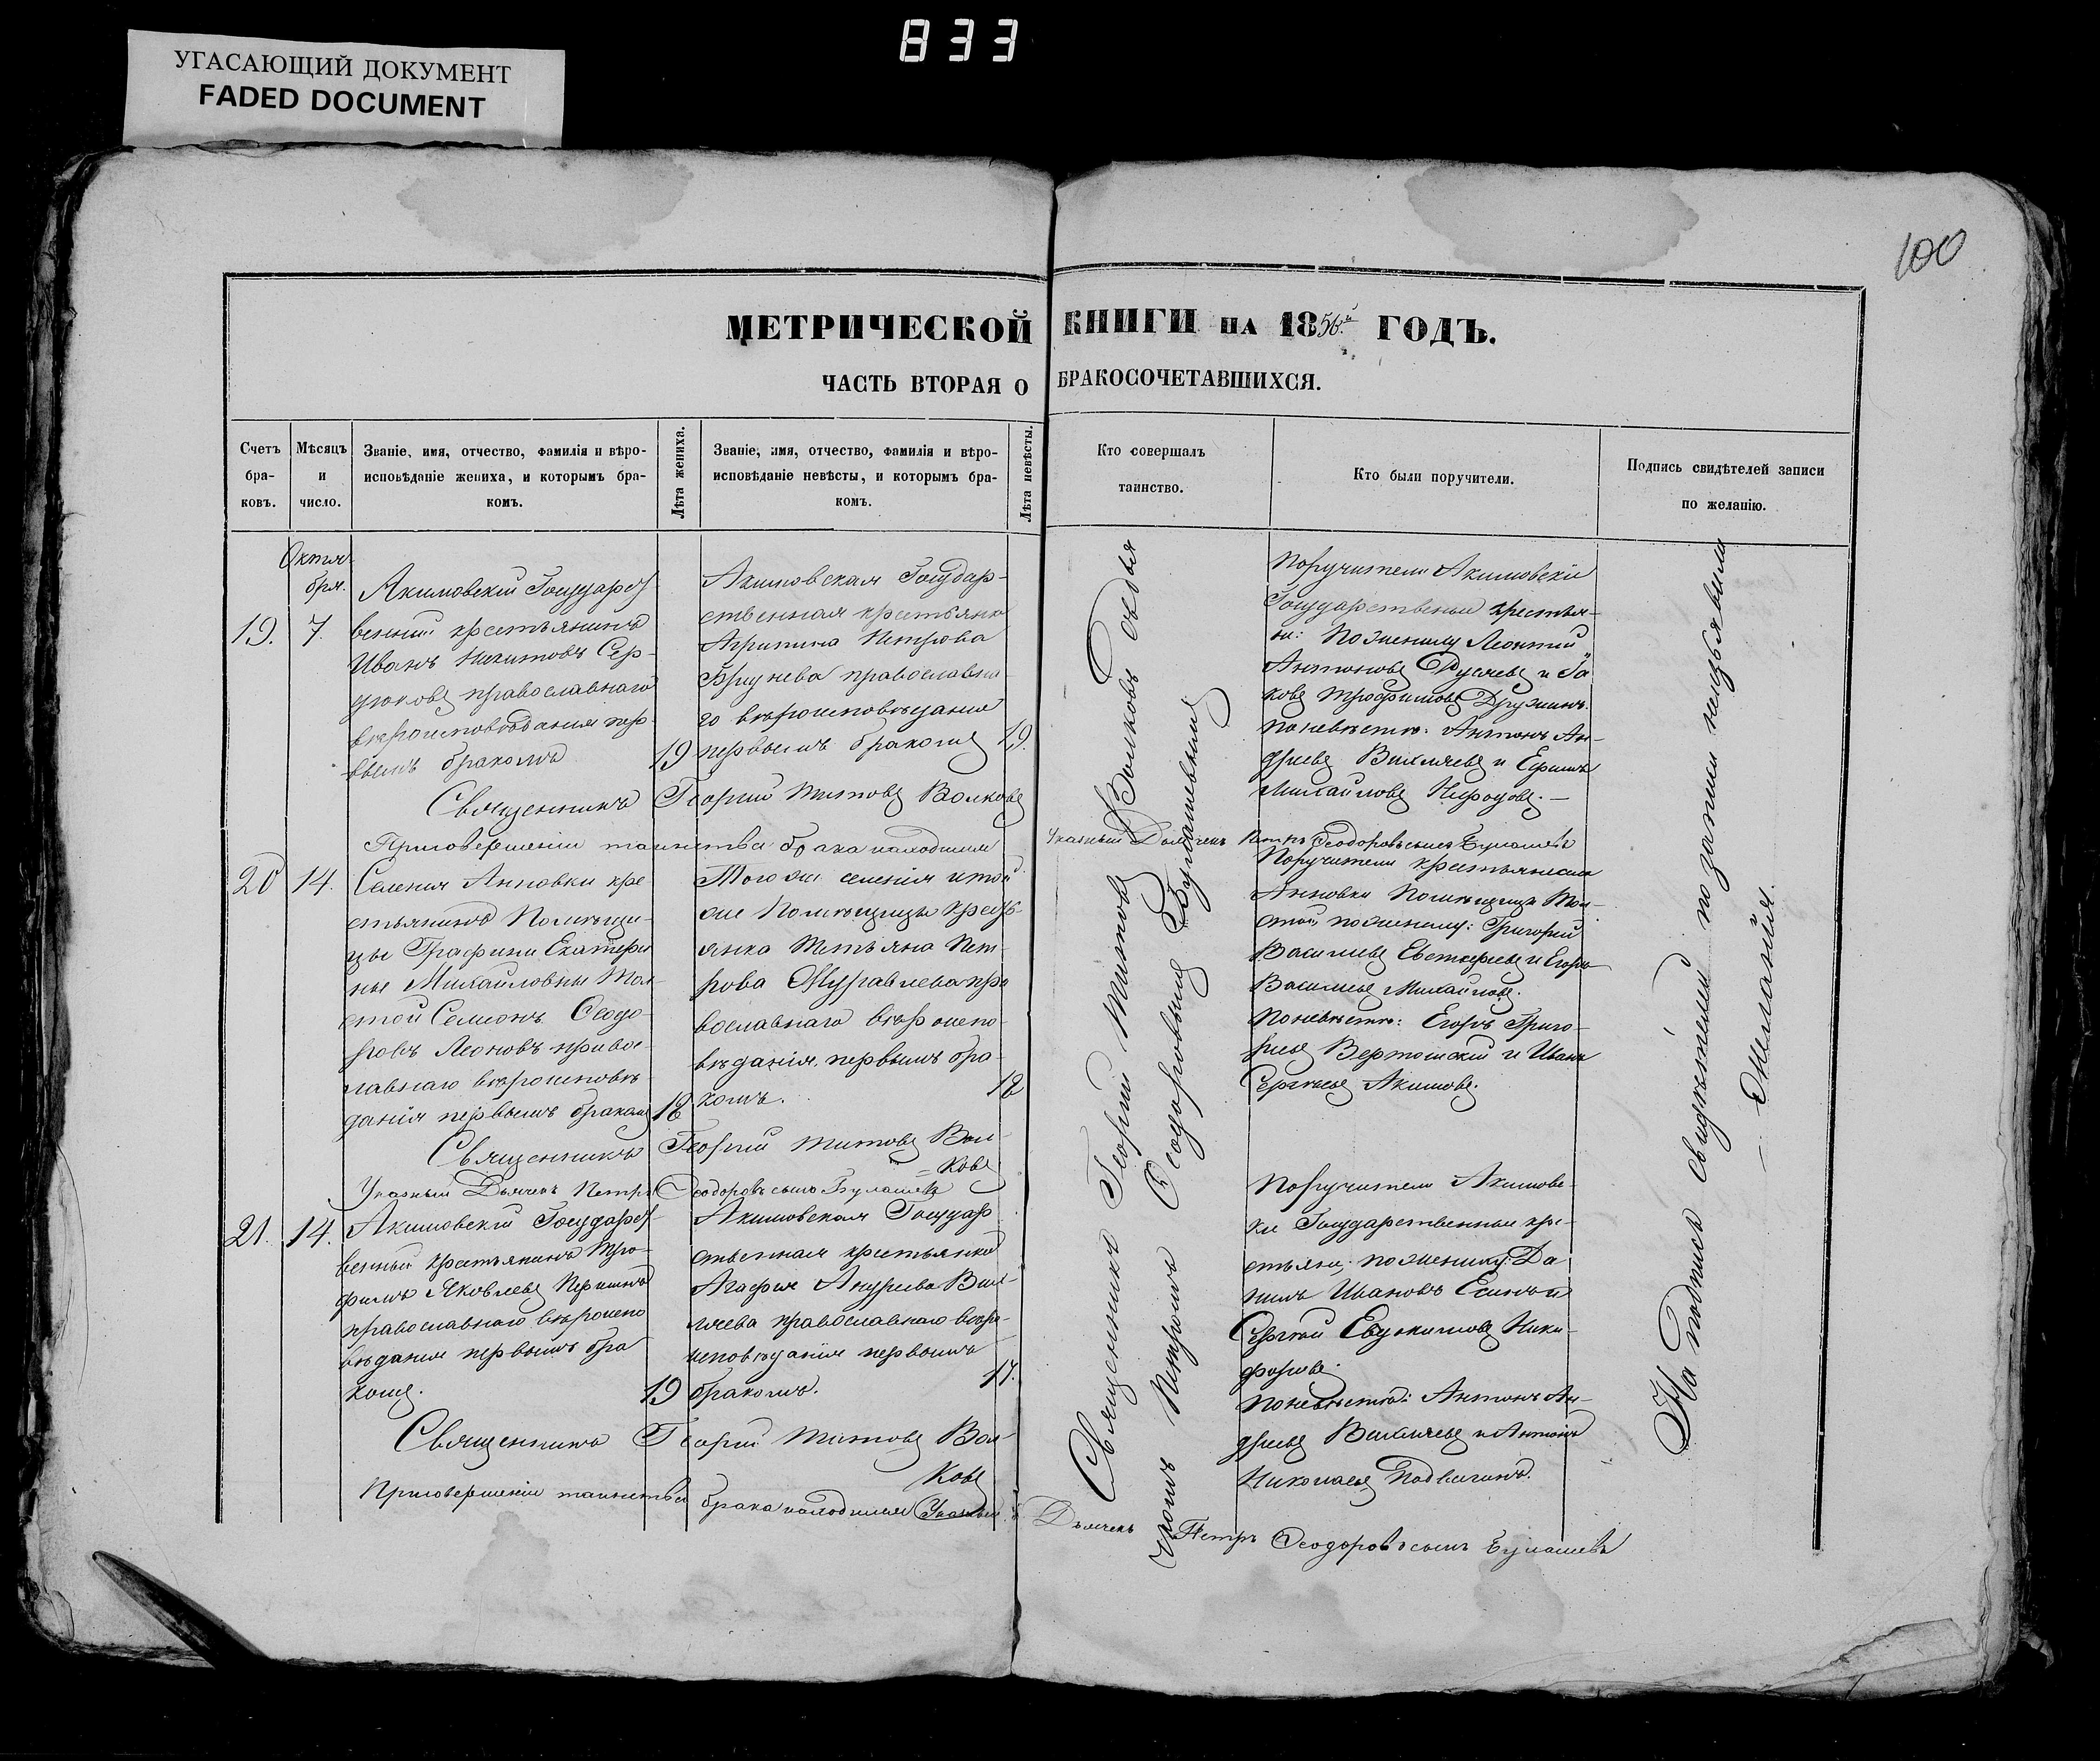 833
УГАСАЮЩИЙ ДОКУМЕНТ
FADED DOCUMENT
100
МЕТРИЧЕСКОЙ КНИГИ НА 1856й ГОДЪ.
ЧАСТЬ ВТОРАЯ О БРАКОСОЧЕТАВШИХСЯ.
Счетъ
бра-
ковъ.
Мѣсяцъ
и
число.
Званіе, имя, отчество, фамилія и вѣро-
исповѣданіе жениха, и которымъ бра-
комъ.
Лѣта жениха.
Званіе, имя, отчество, фамилія и вѣро-
исповѣданіе невѣсты, и которымъ бра-
комъ.
Лѣта невѣсты.
Кто совершалъ
таинство.
Кто были поручители.
Подпись свидѣтелей записи
по желанію.
Октя-
бря.
19. 7.
Акимовскій Государст
венный крестьянинъ
Иванъ Никитовъ Сер-
дюковъ православнаго
вѣроисповѣданія пер-
вымъ бракомъ
19
Акимовская Государ-
ственная крестьянка
Агрипина Петрова
православна
го вѣроисповѣданія
первымъ бракомъ
19.
Поручители Акимовскіе
Государственные крестья-
не: По женихѣ Леонтій
Антоновъ и Яковъ
Трофимовъ
По невѣстѣ: Антонъ Ан-
дреевъ Вихляевъ и Ефимъ
Михайловъ
Священникъ Георгій Титовъ Волковъ
При совершеніи таинства брака находился
Указный Дьячекъ Петръ Ѳеодоровъ сынъ Булашевъ
20 14.
Селенія Анновки кре
стьянинъ Помѣщи-
цы Графини Екатери
ны Михайловны Тол-
стой Семионъ Ѳеодо-
ровъ Леоновъ правос-
лавнаго вѣроисповѣ-
данія первымъ бракомъ
18
Того же селенія и той
же Помѣщицы крест-
янка Татьяна Пет-
рова Муравлева пра
вославнаго вѣроиспо-
вѣданія, первымъ бра-
комъ.
18
Поручители крестьяне села
Анновки Помѣщицы Тол-
стой, по женихѣ: Григорій
Васильевъ и Егоръ
Васильевъ Михайловъ.
По невѣстѣ: Егоръ Григо-
рьевъ и Иванъ
Сергѣевъ Акимовъ.
Священникъ Георгій Титовъ Вол-
ковъ
Указный Дьячекъ Петръ Ѳеодоровъ сынъ Булашевъ
21. 14.
Акимовскій Государст
венный крестьянинъ Тро-
фимъ Яковлевъ
православнаго вѣроиспо
вѣданія первымъ бра
комъ.
19
Акимовская Государ
ственная крестьянка
Агафія Андреева Вих-
ляева православнаго вѣро-
исповѣданія первымъ
бракомъ.
17.
Поручители Акимовс-
кіе Государственные кре-
стьяне, по женихѣ: Да
нилъ Ивановъ и
Сергѣй Евдокимовъ Ники-
форовъ.
По невѣстѣ: Антонъ Ан-
дреевъ Вихляевъ и Антонъ
Николаевъ
Священникъ Георгій Титовъ Вол-
ковъ
При совершеніи таинства брака находился Указный
Дьячекъ Петръ Ѳеодоровъ сынъ Булашевъ
Священникъ Георгій Титовъ Волковъ
Петромъ Ѳеодоровымъ Булашевымъ
На подпись свидѣтелей по записи неизъявили
Желанія.